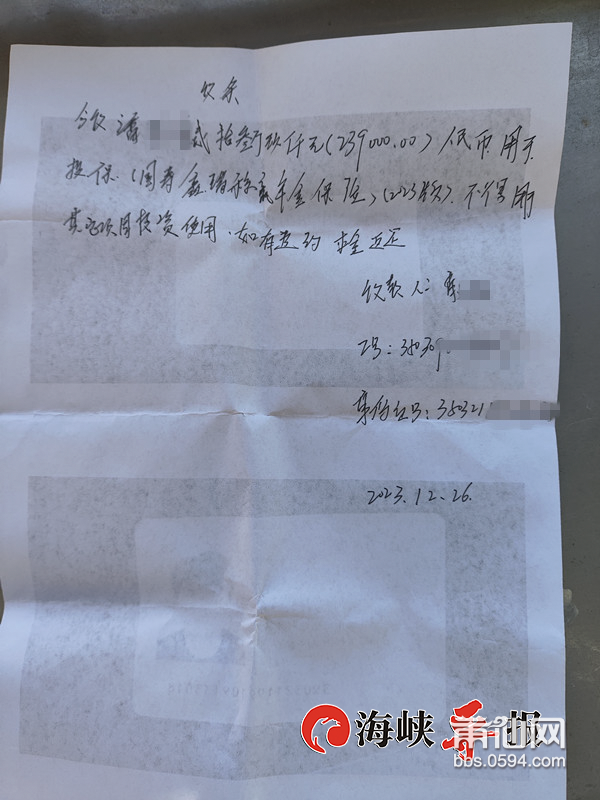 收条
今收潘 贰拾叁万玖仟元(239000.00)人民币用于
投保.(国寿鑫 年金保险)(2023版).不得用
其它项目投资使用.如有违约 全 还
收款人:
工号:350309
身份证号:350321
2023.12.26.
海峡导报
莆仙网
bbs.0594.com